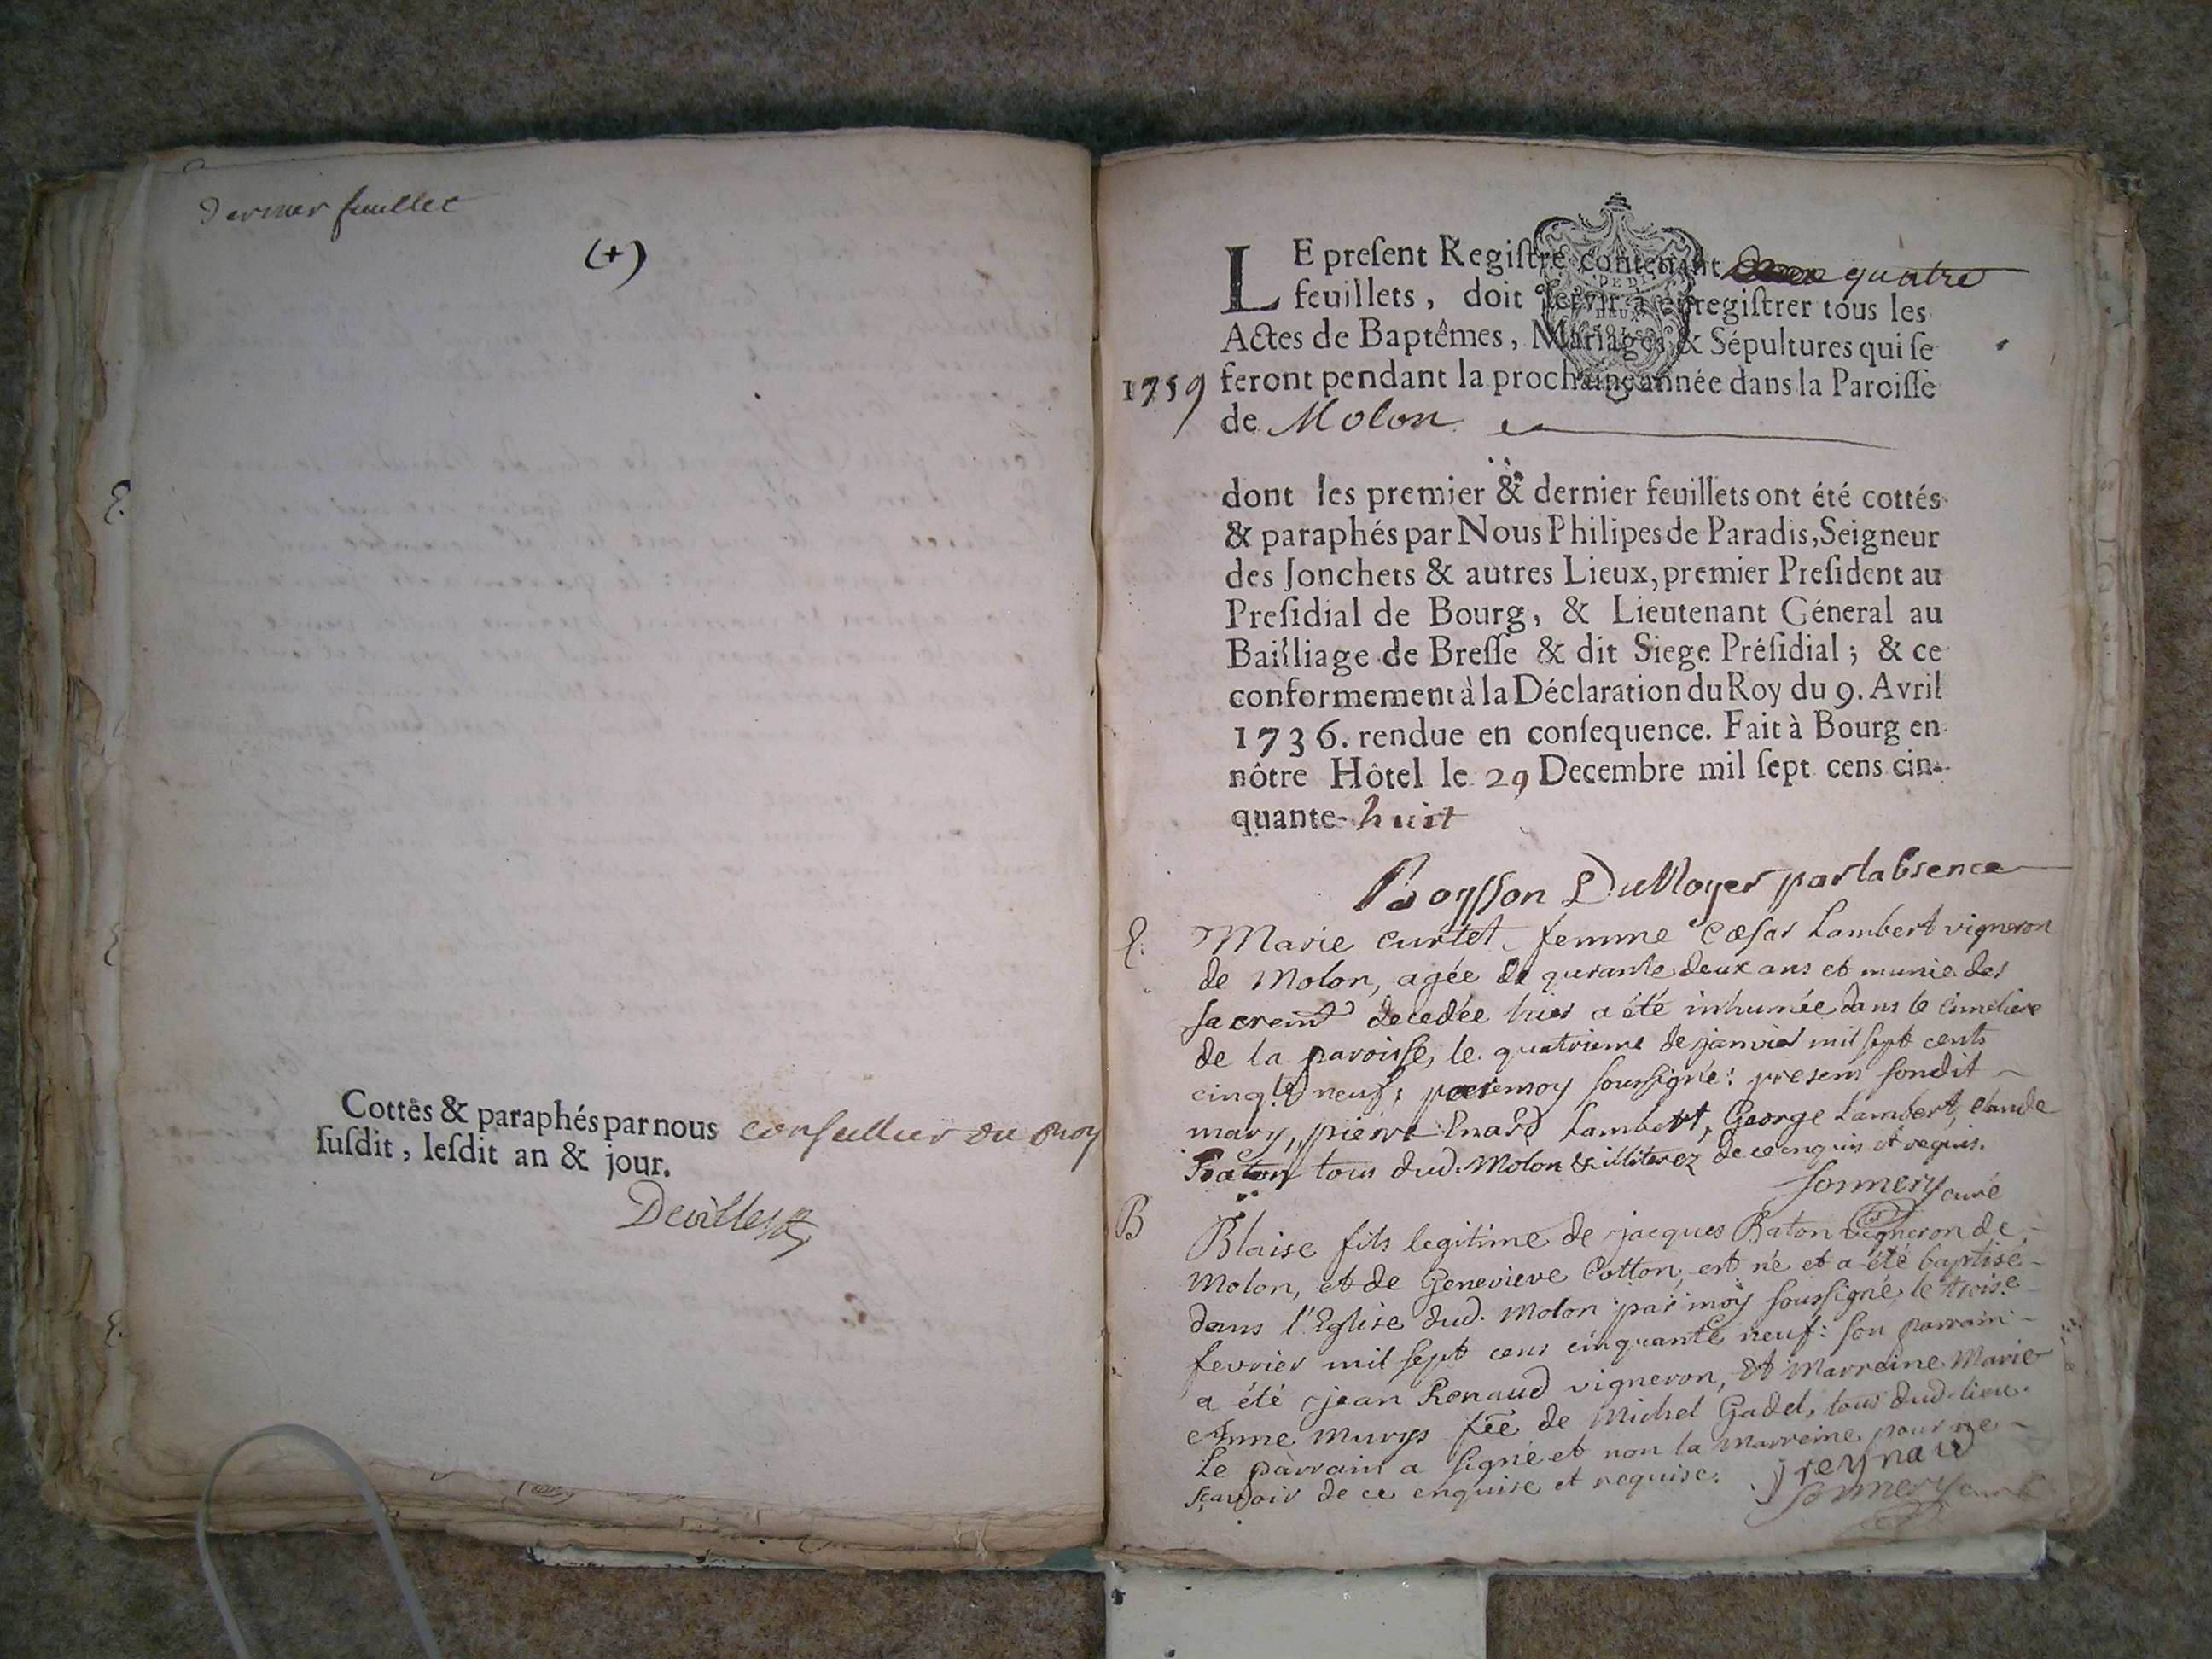 dernier feuillet
(+)
Cottés & paraphés par nous conseiller du Roy
susdit, lesdit an & jour.
Deville
LE present Registre contenant quatre
feuillets, doit servir à enregistrer tous les
Actes de Baptêmes, Mariages & Sépultures qui se
1759 feront pendant la prochaine année dans la Paroisse
de Molon
dont les premier & dernier feuillets ont été cottés
& paraphés par Nous Philipes de Paradis, Seigneur
des Jonchets & autres Lieux, premier President au
Presidial de Bourg, & Lieutenant Géneral au
Bailliage de Bresse & dit Siege Présidial; & ce
conformement à la Déclaration du Roy du 9. Avril
1736. rendue en consequence. Fait à Bourg en
nôtre Hôtel le 29 Decembre mil sept cens cin-
quante-huit
par labsence
Marie curtet femme Cæsar Lambert vigneron
de Molon, agée de qurante deux ans et munie des
sacremts decedée hier a été inhumée dans le cimetiere
de la paroisse, le quatrieme de janvier mil sept cents
cinqte neuf; par moy soussigné: presens sondit
mary, pierre Lambert, George Lambert, claude
Baton tous dud. Molon & illiterez de ce enquis et requis.
Sonnery curé
B
Blaise fils legitime de jacques Baton vigneron de
Molon, et de Genevieve Cotton, est né et a été baptisé
dans l'Eglise dud. Molon par moy soussigné, le troise
fevrier mil sept cens cinquante neuf: son parrain
a été jean Renaud vigneron, Et Marreine Marie
Anne murys fée de Michel Gadel, tous dud. lieu.
Le parrain a signé et non la marreine pour ne
sçavoir de ce enquise et requise. j reynaud
Sonnery curé